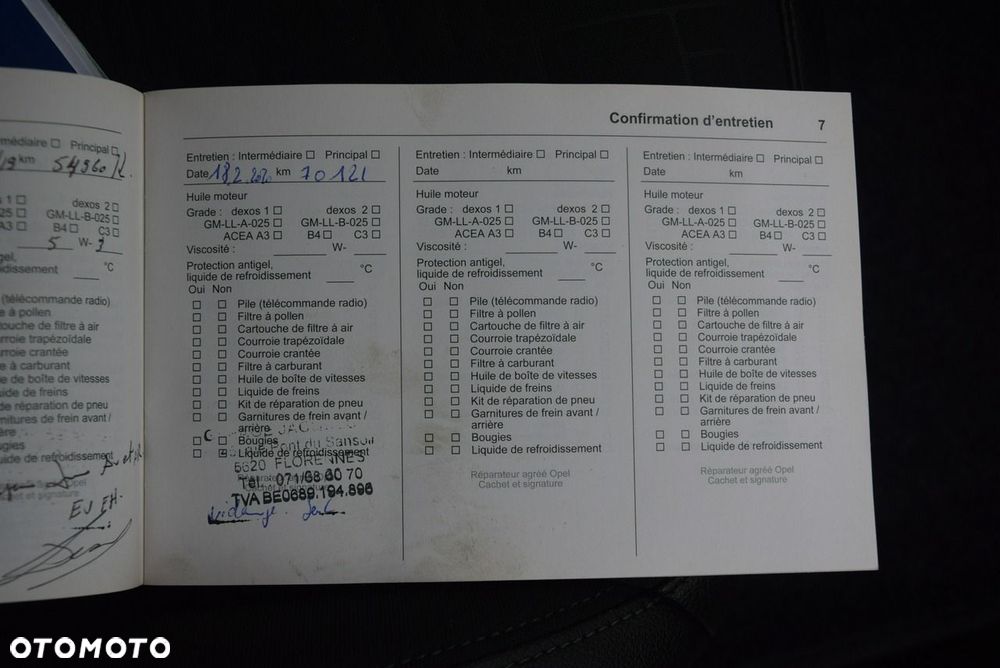 Confirmation d'entretien 7
rmédiaire ☐ Principal ☐
km 54960
s 1 ☐ dexos 2 ☐
25 ☐ GM-LL-B-025 ☐
A3 ☐ B4 ☐ C3 ☐
5 W-
gel,
oidissement ____ °C
(télécommande radio)
e à pollen
ouche de filtre à air
rroie trapézoïdale
rroie crantée
e à carburant
e de boîte de vitesses
ide de freins
de réparation de pneu
nitures de frein avant /
ère
ugies
uide de refroidissement
Opel
et et signature
Entretien : Intermédiaire ☐ Principal ☐
Date 18.2.2020 km 70121
Huile moteur
Grade : dexos 1 ☐ dexos 2 ☐
GM-LL-A-025 ☐ GM-LL-B-025 ☐
ACEA A3 ☐ B4 ☐ C3 ☐
Viscosité : ____ W- ____
Protection antigel,
liquide de refroidissement ____ °C
Oui Non
☐ ☐ Pile (télécommande radio)
☐ ☐ Filtre à pollen
☐ ☐ Cartouche de filtre à air
☐ ☐ Courroie trapézoïdale
☐ ☐ Courroie crantée
☐ ☐ Filtre à carburant
☐ ☐ Huile de boîte de vitesses
☐ ☐ Liquide de freins
☐ ☐ Kit de réparation de pneu
☐ ☐ Garnitures de frein avant /
arrière
☐ ☐ Bougies
Pont du Sansoir
☐ ☐ Liquide de refroidissement
5620 FLORENNES
Tél. 071/68 80 70
Cachet et signature
TVA BE0689.194.896
Entretien : Intermédiaire ☐ Principal ☐
Date km
Huile moteur
Grade : dexos 1 ☐ dexos 2 ☐
GM-LL-A-025 ☐ GM-LL-B-025 ☐
ACEA A3 ☐ B4 ☐ C3 ☐
Viscosité : ____ W- ____
Protection antigel,
liquide de refroidissement ____ °C
Oui Non
☐ ☐ Pile (télécommande radio)
☐ ☐ Filtre à pollen
☐ ☐ Cartouche de filtre à air
☐ ☐ Courroie trapézoïdale
☐ ☐ Courroie crantée
☐ ☐ Filtre à carburant
☐ ☐ Huile de boîte de vitesses
☐ ☐ Liquide de freins
☐ ☐ Kit de réparation de pneu
☐ ☐ Garnitures de frein avant /
arrière
☐ ☐ Bougies
☐ ☐ Liquide de refroidissement
Réparateur agréé Opel
Cachet et signature
Entretien : Intermédiaire ☐ Principal ☐
Date km
Huile moteur
Grade : dexos 1 ☐ dexos 2 ☐
GM-LL-A-025 ☐ GM-LL-B-025 ☐
ACEA A3 ☐ B4 ☐ C3 ☐
Viscosité : ____ W- ____
Protection antigel,
liquide de refroidissement ____ °C
Oui Non
☐ ☐ Pile (télécommande radio)
☐ ☐ Filtre à pollen
☐ ☐ Cartouche de filtre à air
☐ ☐ Courroie trapézoïdale
☐ ☐ Courroie crantée
☐ ☐ Filtre à carburant
☐ ☐ Huile de boîte de vitesses
☐ ☐ Liquide de freins
☐ ☐ Kit de réparation de pneu
☐ ☐ Garnitures de frein avant /
arrière
☐ ☐ Bougies
☐ ☐ Liquide de refroidissement
Réparateur agréé Opel
Cachet et signature
OTOMOTO